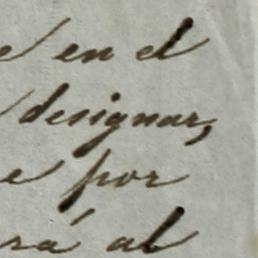 e en el
designar,
e por
rá al